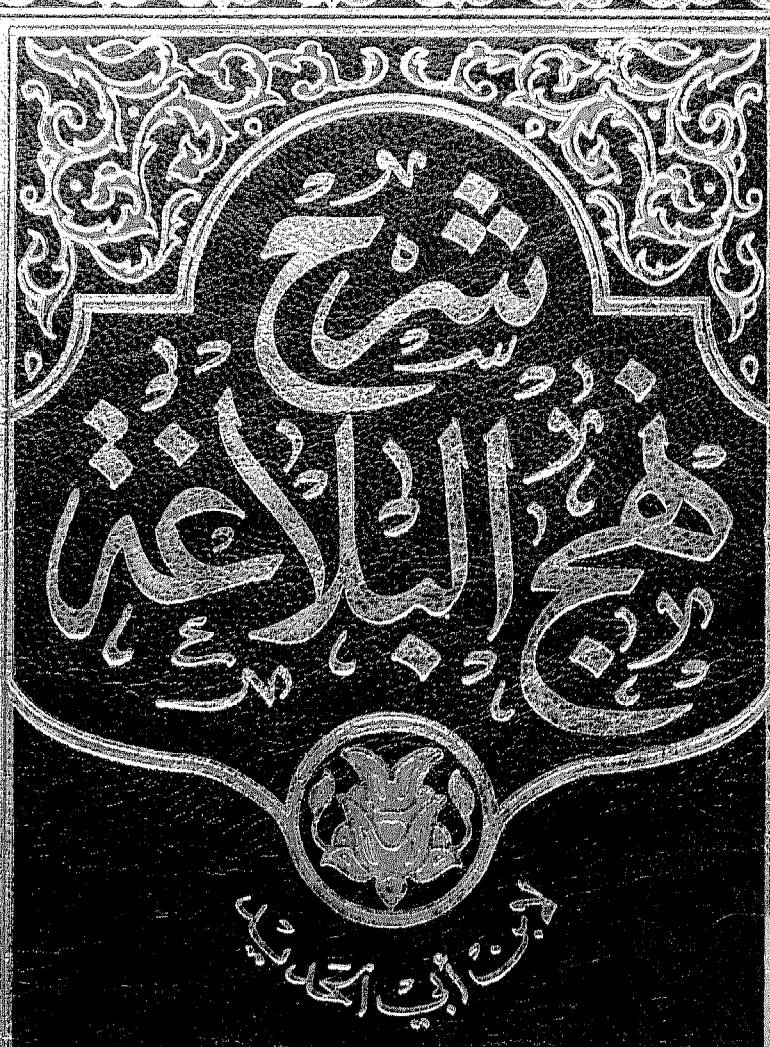 شرح
نهج البلاغة
لابن أبي الحديد